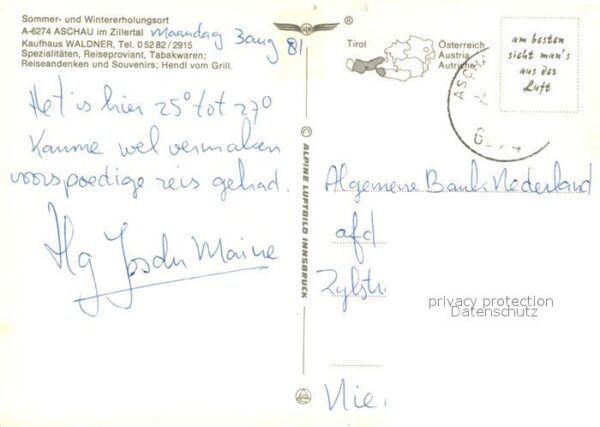 Sommer- und Wintererholungsort
A-6274 ASCHAU im Zillertal Maandag 3 aug 81
Kaufhaus WALDNER, Tel. 0 52 82 / 2915
Spezialitäten, Reiseproviant, Tabakwaren;
Reiseandenken und Souvenirs; Hendl vom Grill.
Het is hier 25° tot 27°
Kamme wel vermaken
voorspoedige reis gehad.
Hg Maine
®
© ALPINE LUFTBILD INNSBRUCK
Tirol
Österreich
Austria
Autriche
am besten
sieht man's
aus der
Luft
ASCHA
Algemene Bank Nederland
afd
Zylstr
privacy protection
Datenschutz
Nie